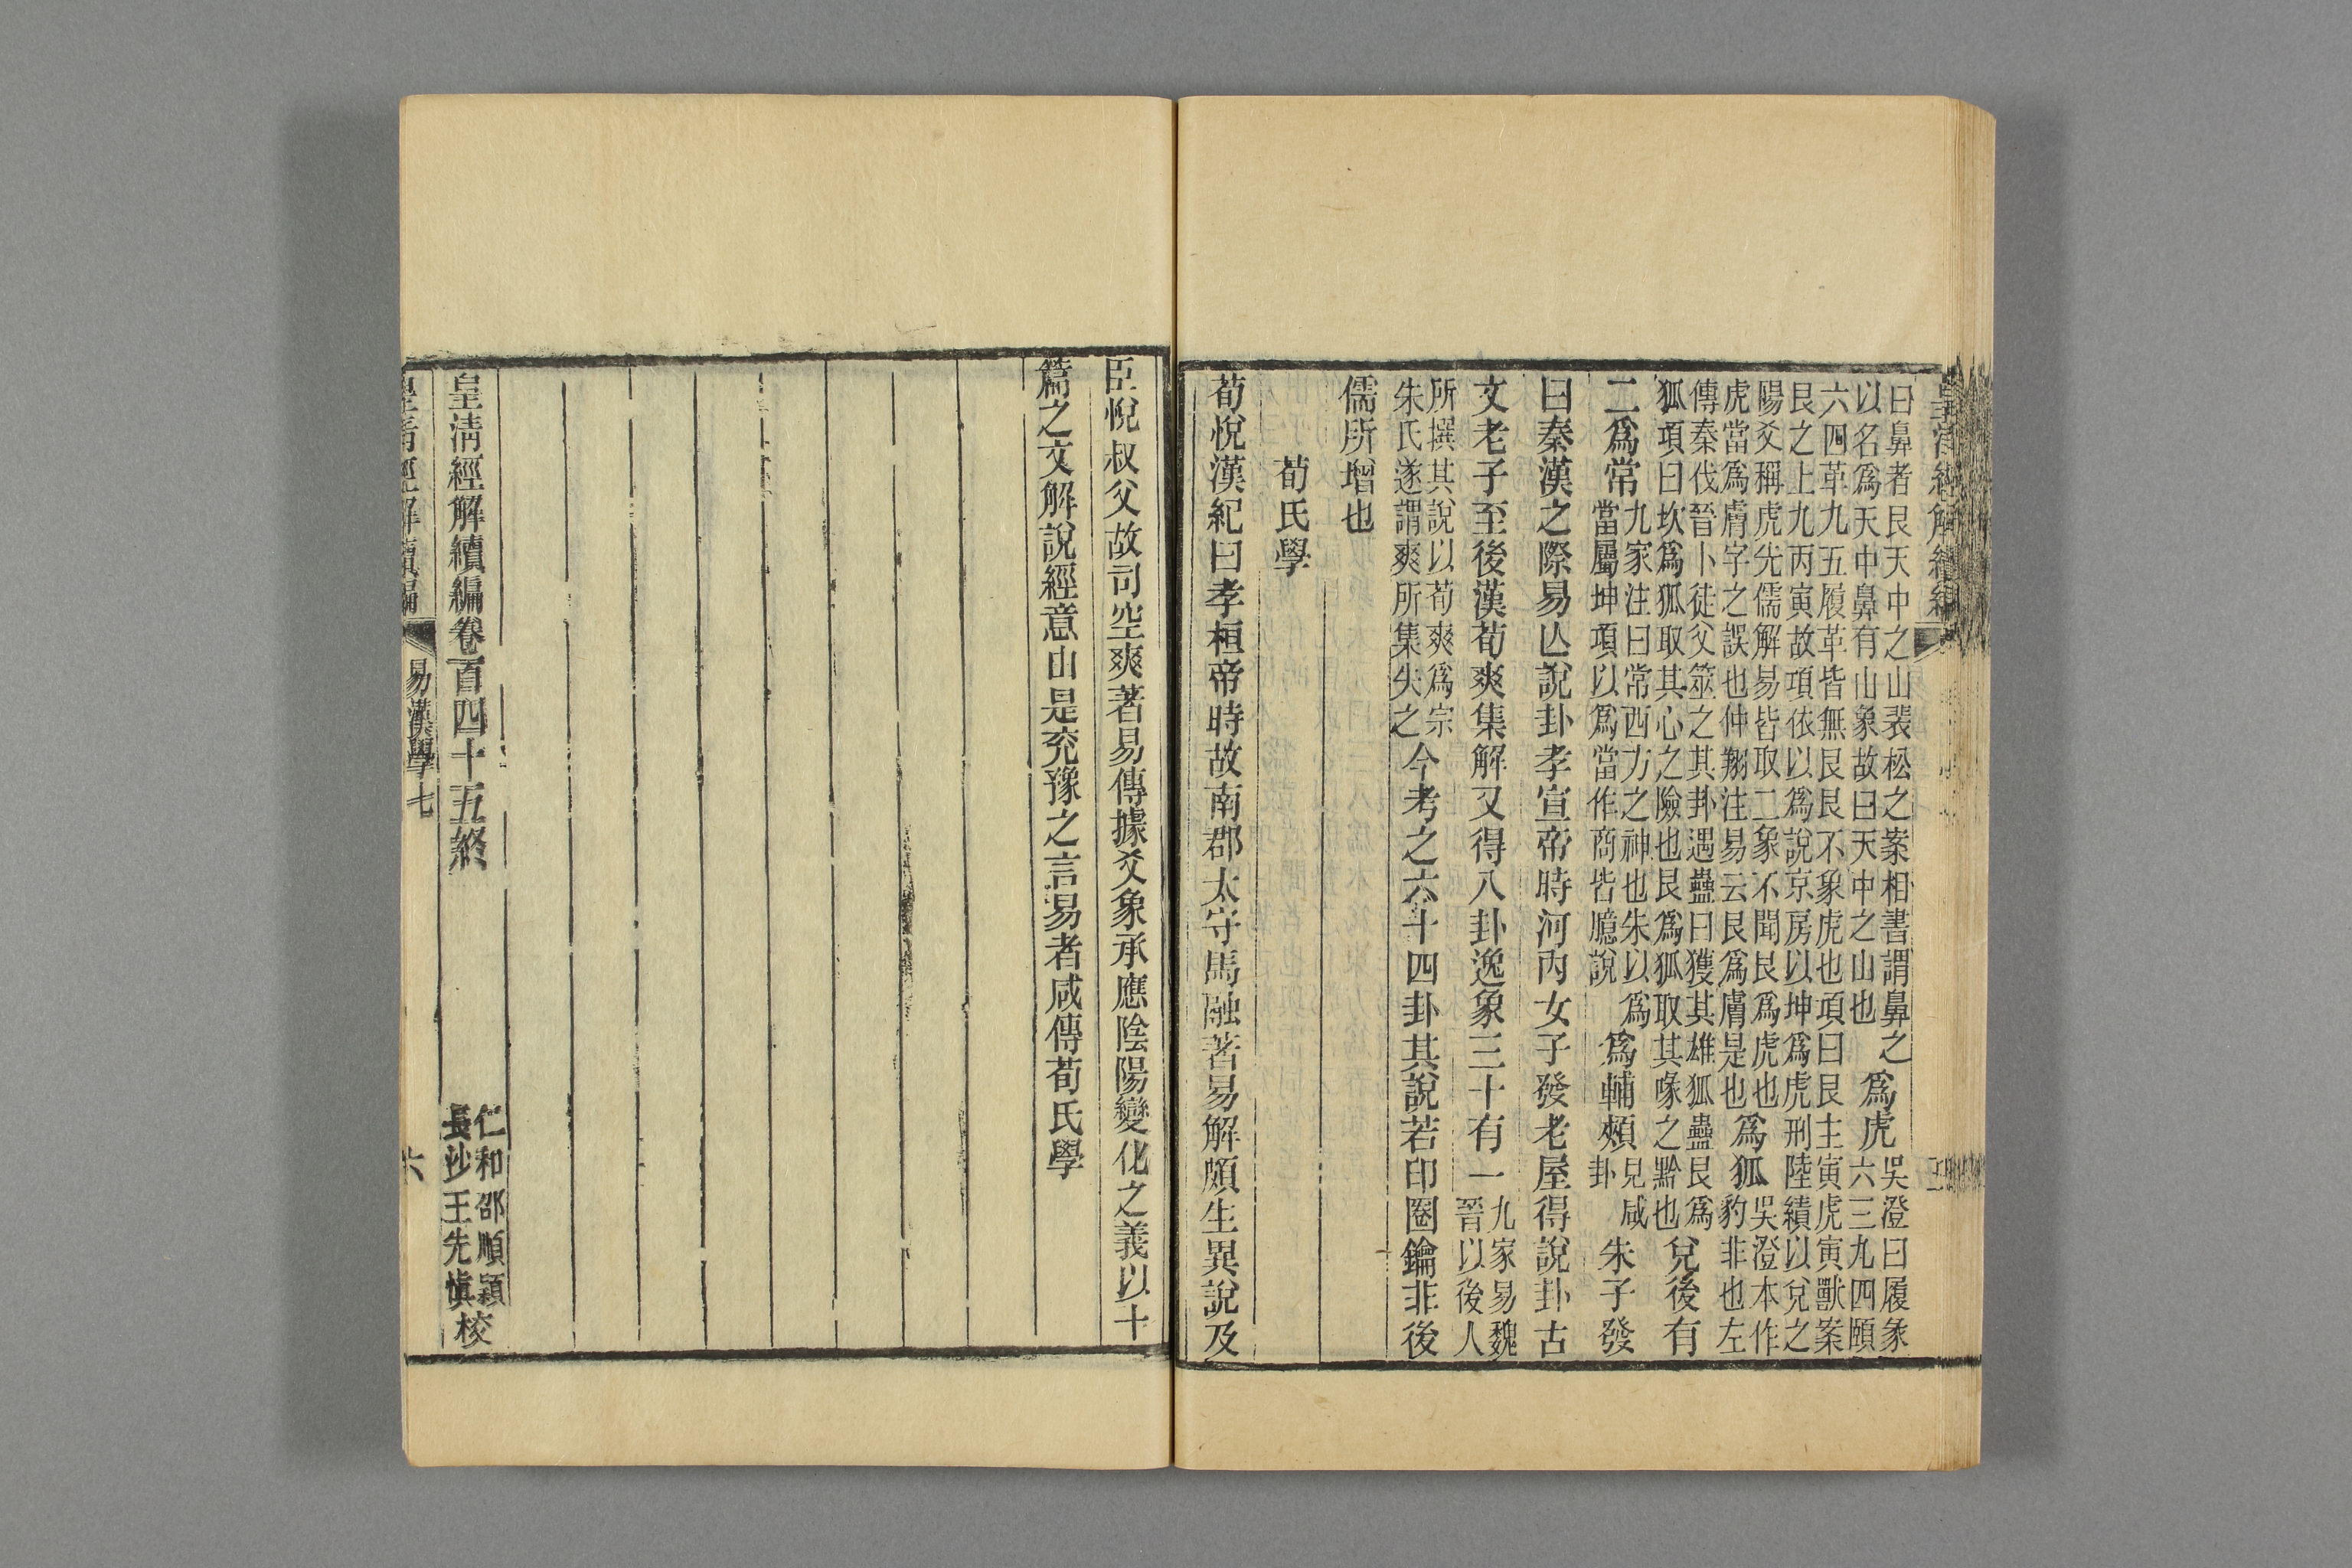 曰鼻者艮天中之山裴松之案相書謂鼻之
以名爲天中鼻有山象故曰天中之山也
爲虎
吳澄曰履彖
六三九四頤
六四革九五履革皆無艮艮不象虎也項曰艮主寅虎寅獸案
艮之上九丙寅故項依以爲說京房以坤爲虎刑陸績以兌之
陽爻稱虎先儒解易皆取二象不聞艮爲虎也
虎當爲膚字之誤也仲翔注易云艮爲膚是也
爲狐
吳澄本作
豹非也左
傳秦伐晉卜徒父筮之其卦遇蠱曰獲其雄狐蠱艮爲
狐項曰坎爲狐狐取其心之險也艮爲狐取其喙之黔也
兌後有
二爲常
九家注曰常西方之神也朱以爲
當屬坤項以爲當作商皆臆說
爲輔頰
兌咸
卦
朱子發
曰秦漢之際易亾說卦孝宣帝時河內女子發老屋得說卦古
文老子至後漢荀爽集解又得八卦逸象三十有一
九家易魏
晉以後人
所撰其說以荀爽爲宗
朱氏遂謂爽所集失之
今考之六十四卦其說若印圈鑰非後
儒所增也
荀氏學
荀悅漢紀曰孝桓帝時故南郡太守馬融著易解頗生異說及
臣悅叔父故司空爽著易傳據爻象承應陰陽變化之義以十
篇之文解說經意由是兖豫之言易者咸傳荀氏學
皇清經解續編卷二百四十五終
仁和邵順穎
長沙王先愼
校
皇清經解續編
易漢學七
六